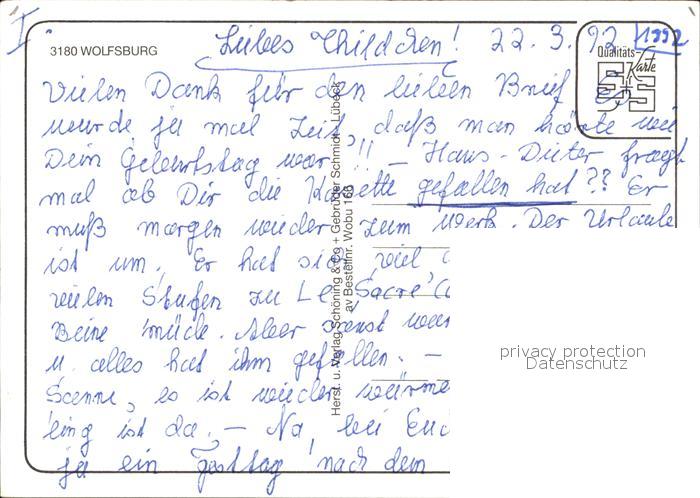 I
3180 WOLFSBURG
Liebes Thildchen! 22.3.92 1992
Qualitäts-Karte
Vielen Dank für den lieben Brief. Es
wurde ja mal Zeit, daß man hörte wie
Dein Geburtstag war!!! – Hans-Dieter fragt
mal ob Dir die Kassette gefallen hat?? Er
muß morgen wieder zum Werk. Der Urlaub
ist um. Er hat sich viel
vielen Stufen zu Le Sacré
Beine müde. Aber sonst war
u. alles hat ihm gefallen. –
Sonne, es ist wieder wärme
ling ist da. – Na, bei Euch
ja ein Festtag nach dem
Herst. u. Verlag Schöning & Co + Gebrüder Schmidt, Lübeck
av Bestellnr. Wobu 163
privacy protection
Datenschutz